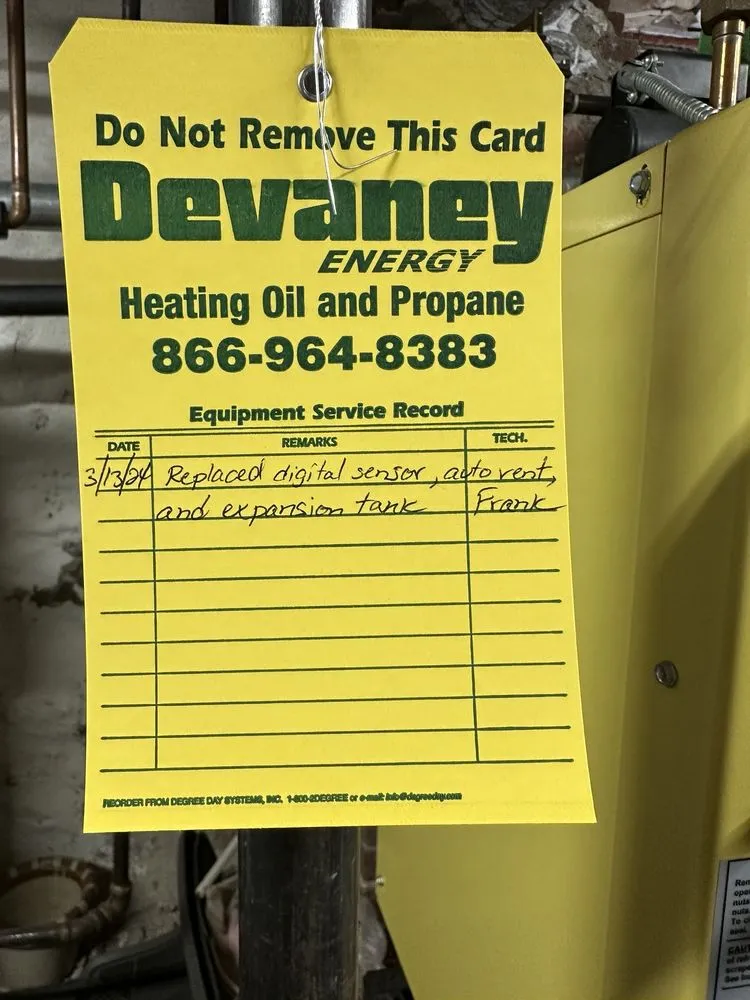 Do Not Remove This Card
Devaney
ENERGY
Heating Oil and Propane
866-964-8383
Equipment Service Record
DATE REMARKS TECH.
3/13/24 Replaced digital sensor, auto vent,
and expansion tank Frank
REORDER FROM DEGREE DAY SYSTEMS, INC. 1-800-2DEGREE or e-mail: info@degreeday.com
To
seal.
See